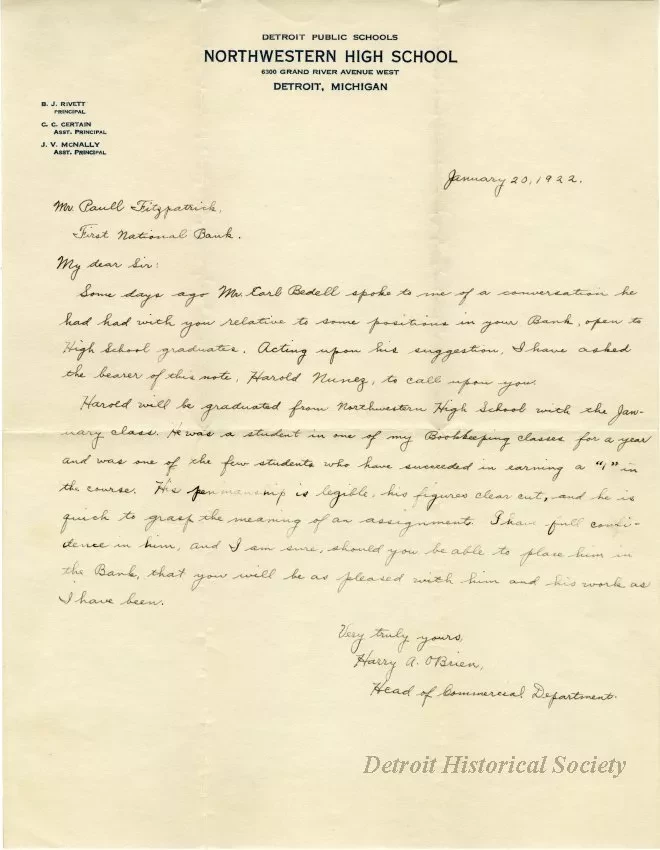 DETROIT PUBLIC SCHOOLS
NORTHWESTERN HIGH SCHOOL
6300 GRAND RIVER AVENUE WEST
DETROIT, MICHIGAN
B. J. RIVETT
PRINCIPAL
C. C. CERTAIN
ASST. PRINCIPAL
J. V. McNALLY
ASST. PRINCIPAL
January 20, 1922.
Mr. Paull Fitzpatrick,
First National Bank.
My dear Sir:
Some days ago Mr. Earl Bedell spoke to me of a conversation he
had had with you relative to some positions in your Bank, open to
High School graduates. Acting upon his suggestion, I have asked
the bearer of this note, Harold Nunez, to call upon you.
Harold will be graduated from Northwestern High School with the Jan-
uary class. He was a student in one of my Bookkeeping classes for a year
and was one of the few students who have succeeded in earning a "1" in
the course. His penmanship is legible, his figures clear cut, and he is
quick to grasp the meaning of an assignment. I have full confi-
dence in him, and I am sure, should you be able to place him in
the Bank, that you will be as pleased with him and his work as
I have been.
Very truly yours,
Harry A. O'Brien,
Head of Commercial Department.
Detroit Historical Society